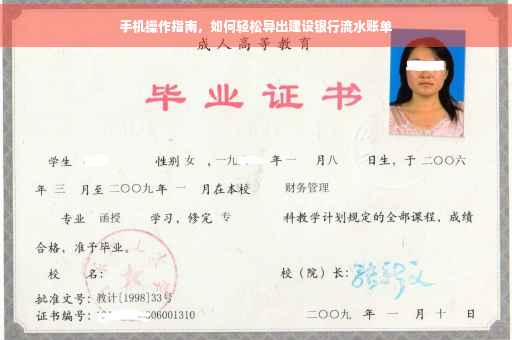 手机操作指南，如何轻松导出建设银行流水账单
成人高等教育
毕业证书
学生 性别 女 ，一九 年 一 月 八 日生，于 二〇〇六
年 三 月至 二〇〇九 年 一 月在本校 财务管理
专业 函授 学习，修完 专 科教学计划规定的全部课程，成绩
合格，准予毕业。
校 名： 校（院）长：
批准文号：教计[1998]33号
证书编号： 006001310 二〇〇九 年 一 月 十 日